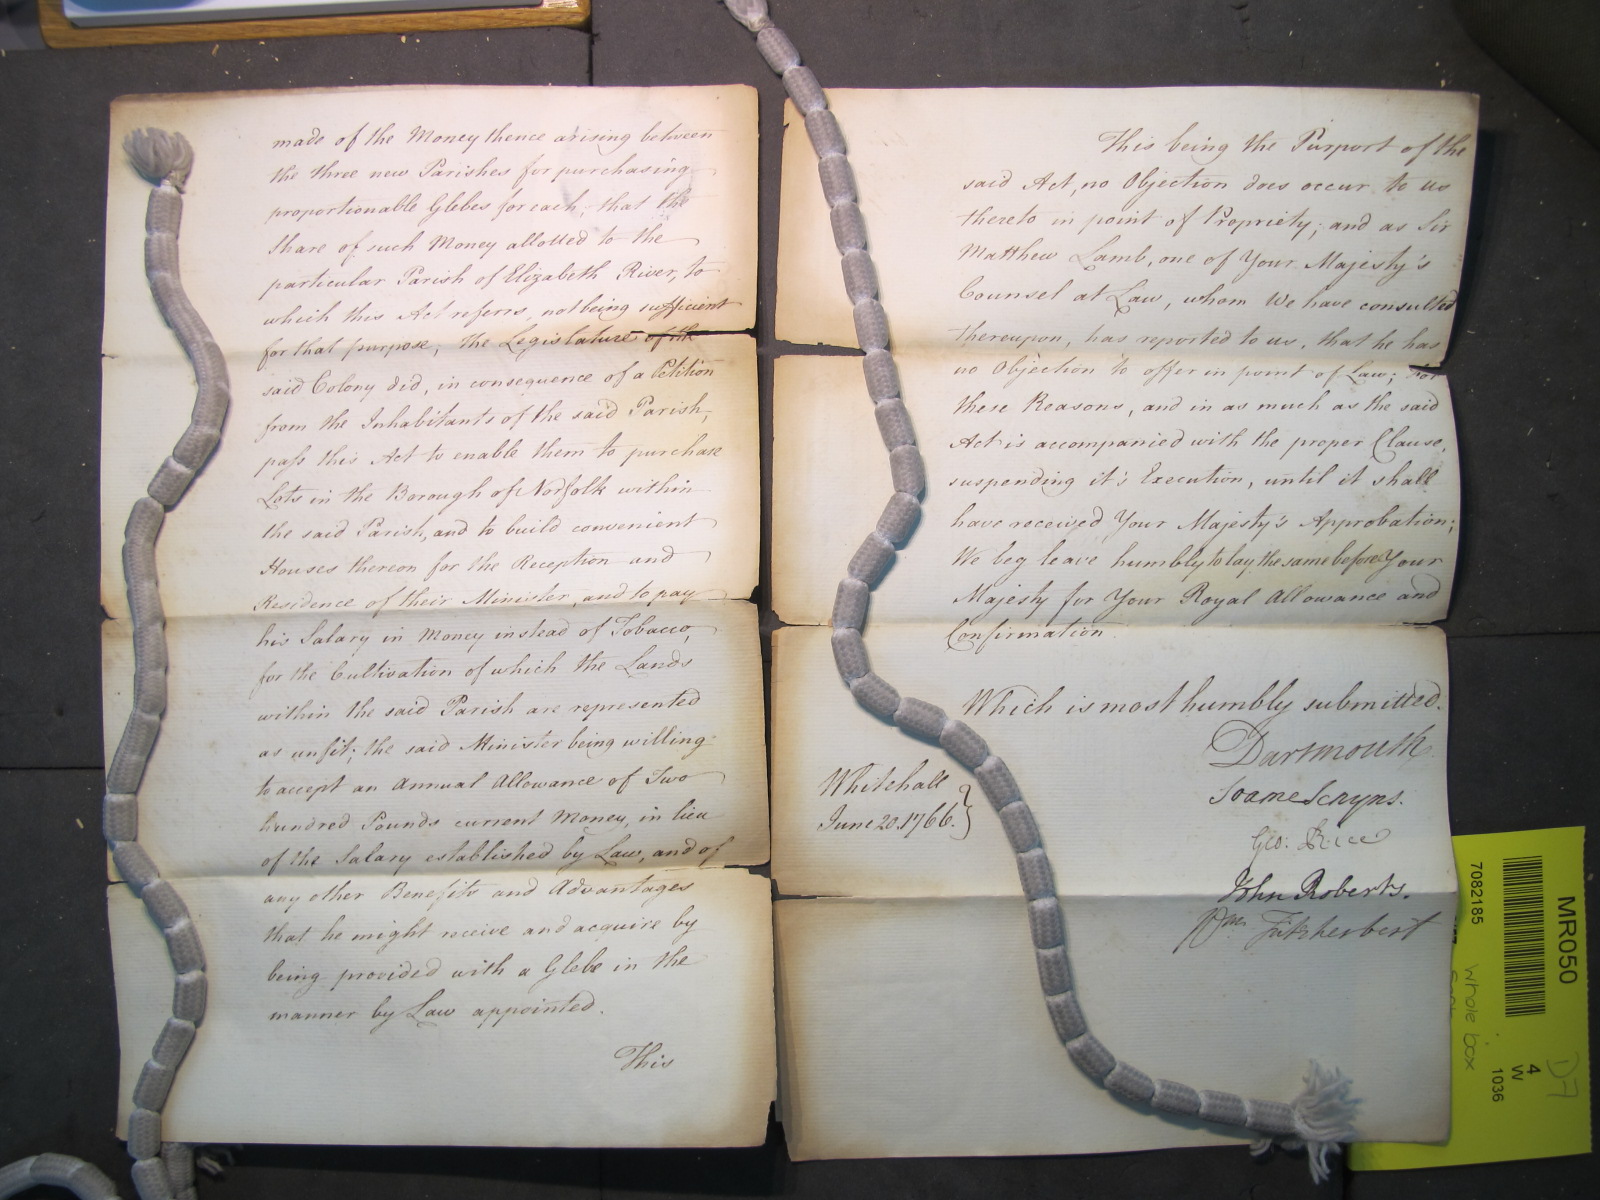 made of the Money thence arising between
the three new Parishes for purchasing
proportionable Glebes for each; that the
Share of such Money allotted to the
particular Parish of Elizabeth River, to
which this Act referrs, not being sufficient
for that purpose; the Legislature of the
said Colony did, in consequence of a Petition
from the Inhabitants of the said Parish,
pass this Act to enable them to purchase
Lots in the Borough of Norfolk within
the said Parish, and to build convenient
Houses thereon for the Reception and
Residence of their Minister, and to pay
his Salary in Money instead of Tobacco,
for the Cultivation of which the Lands
within the said Parish are represented
as unfit; the said Minister being willing
to accept an Annual Allowance of Two
hundred Pounds current Money, in lieu
of the Salary established by Law, and of
any other Benefits and Advantages
that he might receive and acquire by
being provided with a Glebe in the
manner by Law appointed.
This
This being the Purport of the
said Act, no Objection does occur to us
thereto in point of Propriety; and as Sir
Matthew Lamb, one of Your Majesty's
Counsel at Law, whom We have consulted
thereupon, has reported to us, that he has
no Objection to offer in point of Law; For
these Reasons, and in as much as the said
Act is accompanied with the proper Clause,
suspending it's Execution, until it shall
have received Your Majesty's Approbation;
We beg leave humbly to lay the same before Your
Majesty for Your Royal Allowance and
Confirmation
Which is most humbly submitted.
Dartmouth
Soame Jenyns.
Geo: Rice
John Roberts.
Wm. Fitzherbert
Whitehall
June 20. 1766.
MR050
7082185
4
W
1036
whole box
D7